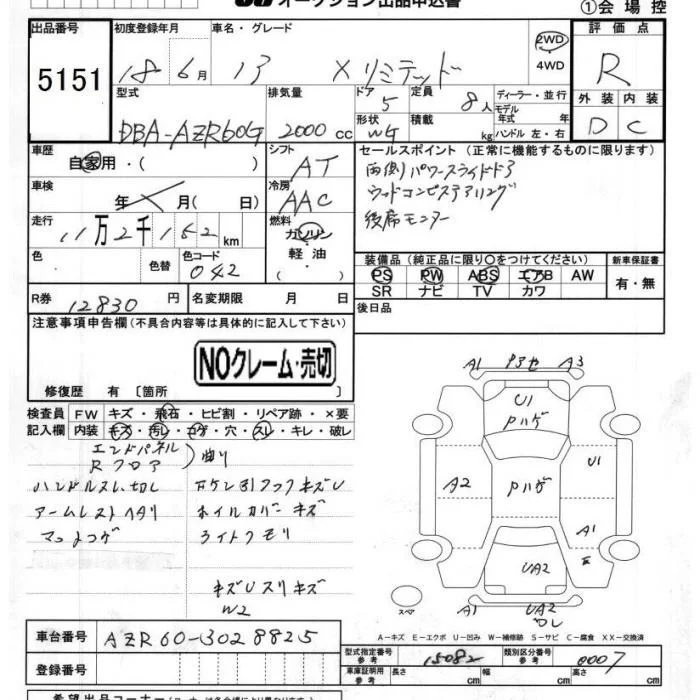 オークション出品申込書
①会場控
出品番号 初度登録年月 車名・グレード 評価点
5151 18年 6月 アイシス X リミテッド 2WD 4WD R
型式 排気量 ドア 定員 ディーラー・並行 外装 内装
DBA-AZR60G 2000cc 5 8人 モデル年式 年 D C
形状 積載 kg ハンドル 左・右
WG
車歴 シフト セールスポイント (正常に機能するものに限ります)
自家用・( ) AT 両側パワースライドドア
車検 冷房 ウッドコンビステアリング
年 月( 日) AAC 後席モニター
走行 燃料
11万2千152km ガソリン
色 色替 色コード 軽油
042 ・( )
装備品 (純正品に限り○をつけてください) 新車保証書
PS PW ABS エアB AW 有・無
SR ナビ TV カワ
R券 12830円 名変期限 月 日 後日品
注意事項申告欄(不具合内容等は具体的に記入して下さい)
NOクレーム・売切
修復歴 有 〔箇所 〕
検査員記入欄 FW キズ・飛石・ヒビ割・リペア跡・×要
内装 キズ・汚レ・コゲ・穴・スレ・キレ・破レ
エンドパネル
Rフロア )曲り
ハンドルスレ、切レ
アームレストヘタリ ホイルカバーキズ
ライトクモリ
キズUスリキズ
W2
A1 A3
U1
Pハゲ
A2 Pハゲ U1
A1
UA2
スペア A1 UA2
ワレ
A-キズ E-エクボ U-凹み W-補修跡 S-サビ C-腐食 XX-交換済
車台番号 AZR60-3028825
型式指定番号 参考 15082 類別区分番号 参考 0007
登録番号
車庫証明用 参考 長さ cm 幅 cm 高さ cm
希望出品コーナー